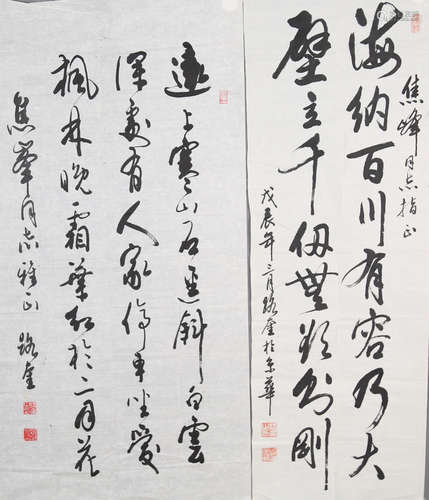 焦峰同志指正
海納百川有容乃大
壁立千仞無欲則剛
戊辰年三月路奎於京華
遠上寒山石逕斜白雲
深處有人家停車坐愛
楓林晚霜葉紅於二月花
焦峯同志雅正 路奎